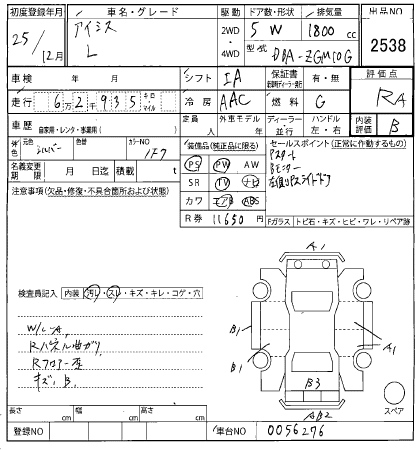 初度登録年月 車名・グレード 駆動 ドア数・形状 排気量 出品NO
25/12月 アイシス L 2WD 4WD 5W 1800cc 2538
型式 DBA-ZGM10G
車検 年 月 シフト IA 保証書 有・無 評価点
走行 6万2千935 キロ・マイル 冷房 AAC 燃料 G RA
車歴 自家用・レンタ・事業用( ) 定員 人 外車モデル 年 ディーラー 並行 ハンドル 左・右 内装 B
外色 元色 シルバー 色替 カラーNO 1F7
装備品(純正品に限る) セールスポイント(正常に動作するもの)
PS PW AW
SR TV ナビ
カワ エアB ABS
Pスタート
Bモニター
左側パワースライドドア
名義変更期限 月 日迄 積載 t
注意事項(欠品・修復・不具合箇所および状態)
R券 11650円
Fガラス トビ石・キズ・ヒビ・ワレ・リペア跡
検査員記入 内装 汚れ・スレ・キズ・キレ・コゲ・穴
W/L-A,
Rパネル曲ガリ
Rフロアー歪
キズ、B,
A1
B1
B1
A1
B3
AB2
スペア
長さ cm 幅 cm 高さ cm
登録NO 車台NO 0056276